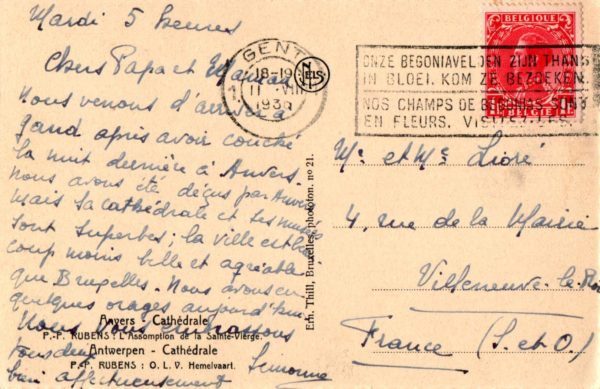 Mardi 5 heures
Chers Papa et Maman
Nous venons d'arriver à
gand après avoir couché
la nuit dernière à Anvers,
nous avons été déçus par Anvers
mais sa cathédrale et ses musées
sont superbes; la ville est beau
coup moins belle et agréable
que Bruxelles. Nous avons eu
quelques orages aujourd'hui.
Nous vous embrassons
tous deux
bien affectueusement
Anvers - Cathédrale
P.-P. RUBENS: L'Assomption de la Sainte-Vierge.
Antwerpen - Cathédrale
P.-P. RUBENS: O. L. V. Hemelvaart.
Ern. Thill, Bruxelles, phototon. no 21.
GENT
18-19
11 VIII
NELS
ONZE BEGONIAVELDEN ZIJN THANS
IN BLOEI. KOM ZE BEZOEKEN.
NOS CHAMPS DE BEGONIAS SONT
EN FLEURS. VISITEZ-LES.
BELGIQUE
BELGIE
Mr et Me
4, rue de la Mairie
Villeneuve-le-Roi
France (S. et O.)